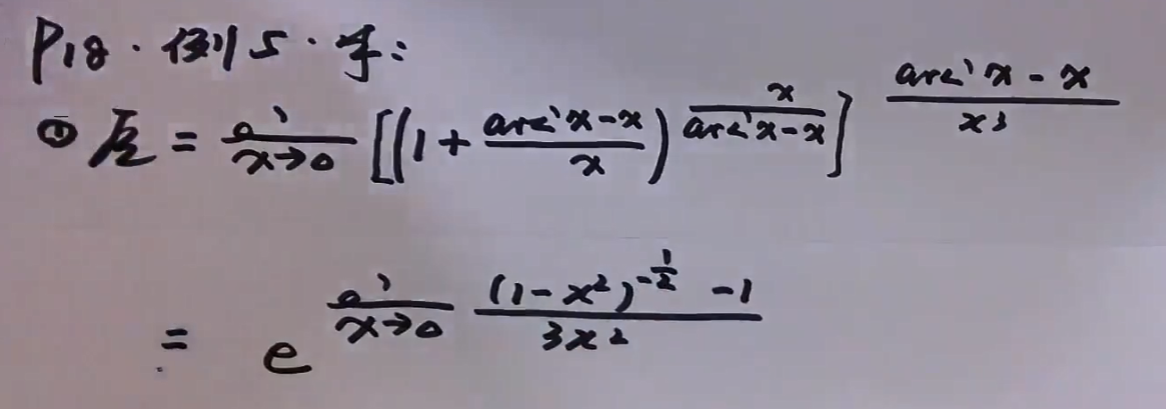 P18·例5·手:
① 原 = \lim_{x→0} [(1 + \frac{arc' x - x}{x})^{\frac{x}{arc' x - x}}]^{\frac{arc' x - x}{x^3}}
= e^{\lim_{x→0} \frac{(1 - x^2)^{-\frac{1}{2}} - 1}{3x^2}}